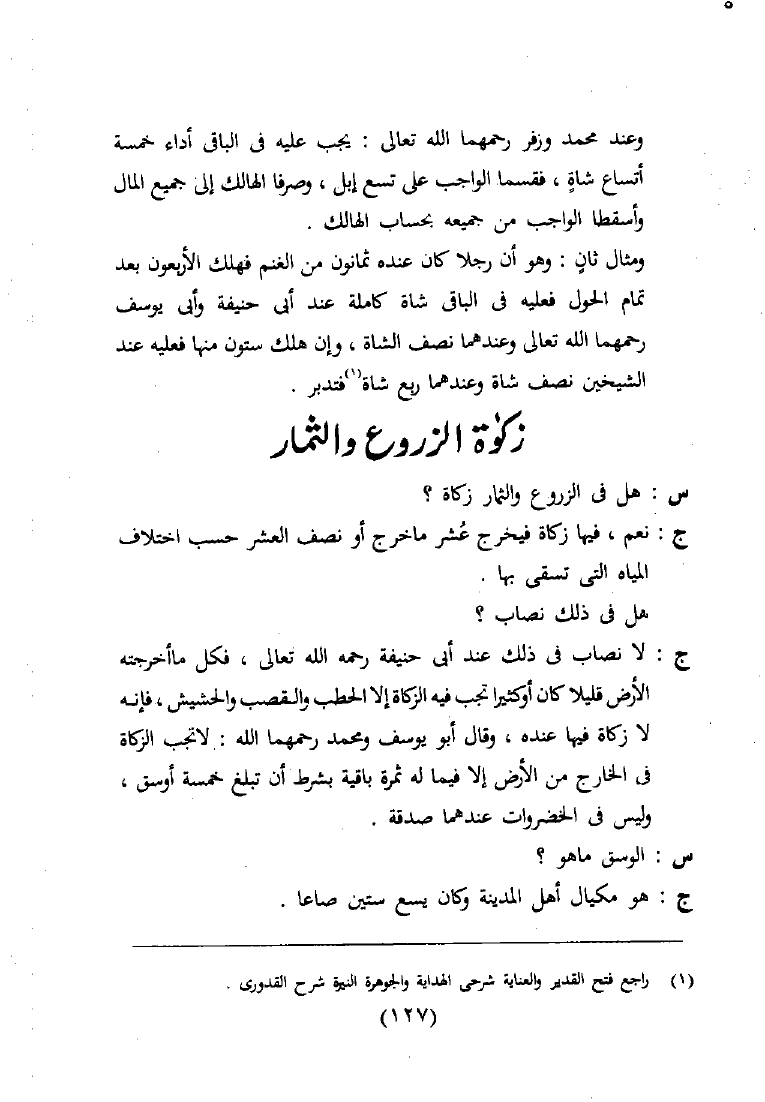 وعند محمد وزفر رحمهما الله تعالى : يجب عليه فى الباقى أداء خمسة
أتساع شاةٍ ، فقسما الواجب على تسع إبل ، وصرفا الهالك إلى جميع المال
وأسقطا الواجب من جميعه بحساب الهالك .
ومثال ثانٍ : وهو أن رجلا كان عنده ثمانون من الغنم فهلك الأربعون بعد
تمام الحول فعليه فى الباقى شاة كاملة عند أبى حنيفة وأبى يوسف
رحمهما الله تعالى وعندهما نصف الشاة ، وإن هلك ستون منها فعليه عند
الشيخين نصف شاة وعندهما ربع شاة(١)فتدبر .
زكوٰة الزروع والثمار
س : هل فى الزروع والثمار زكاة ؟
ج : نعم ، فيها زكاة فيخرج عُشر ماخرج أو نصف العشر حسب اختلاف
المياه التى تسقى بها .
هل فى ذلك نصاب ؟
ج : لا نصاب فى ذلك عند أبى حنيفة رحمه الله تعالى ، فكل ماأخرجته
الأرض قليلا كان أوكثيرا تجب فيه الزكاة إلا الحطب والقصب والحشيش ، فإنه
لا زكاة فيها عنده ، وقال أبو يوسف ومحمد رحمهما الله : لاتجب الزكاة
فى الخارج من الأرض إلا فيما له ثمرة باقية بشرط أن تبلغ خمسة أوسق ،
وليس فى الخضروات عندهما صدقة .
س : الوسق ماهو ؟
ج : هو مكيال أهل المدينة وكان يسع ستين صاعا .
(١) راجع فتح القدير والعناية شرحى الهداية والجوهرة النيرة شرح القدورى .
(١٢٧)